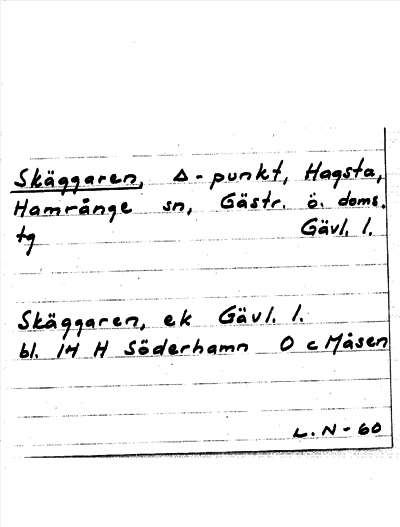 Skäggaren, Δ-punkt, Hagsta,
Hamrånge sn, Gästr. ö. doms.
tg Gävl. l.
Skäggaren, ek Gävl. l.
bl. 14 H Söderhamn O c Måsen
L. N - 60